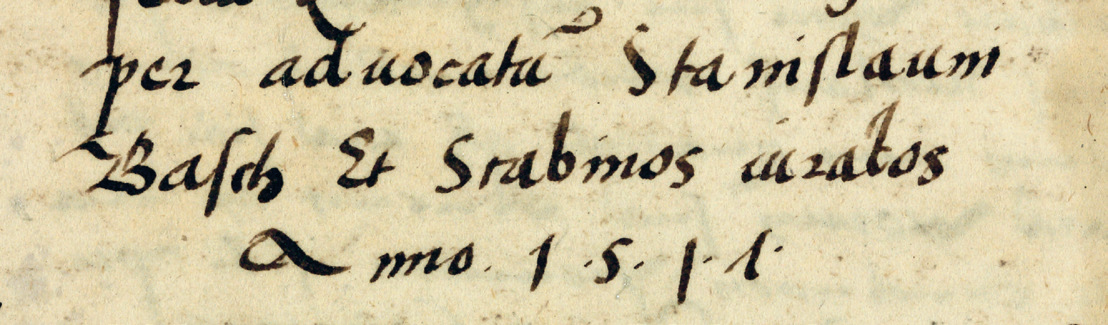 per advocatū Stanislaum
Basch Et Scabinos iuratos
Anno. 1.5.1.1.